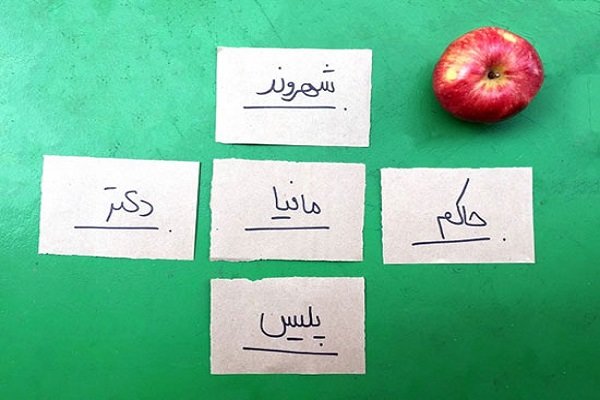 شهروند
حاکم
مافیا
دکتر
پلیس